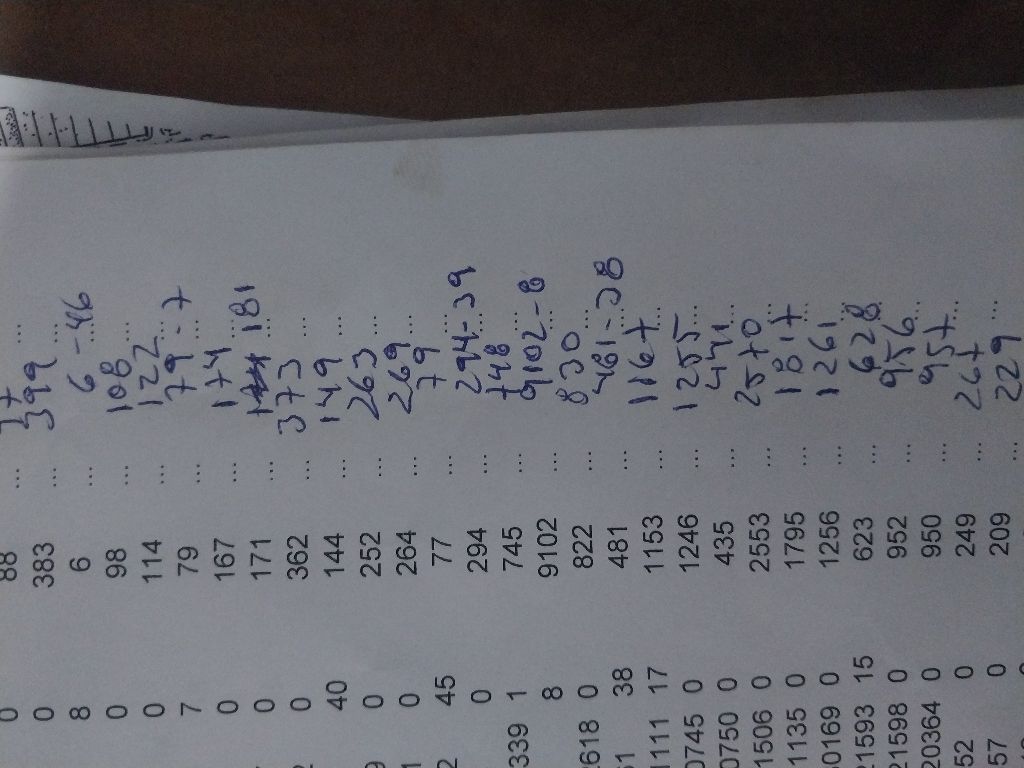 0 88 ...
0 383 ... 399 ...
8 6 ... 6 - 46 ...
0 98 ... 108 ...
0 114 ... 122 ...
7 79 ... 79 - 7 ...
0 167 ... 174 ...
0 171 ... 181 ...
0 362 ... 373 ...
40 144 ... 149 ...
0 252 ... 263 ...
0 264 ... 269 ...
45 77 ... 79 ...
0 294 ... 294-39 ...
339 1 745 ... 748 ...
8 9102 ... 9102-8 ...
2618 0 822 ... 830 ...
38 481 ... 481-38 ...
1111 17 1153 ... 1167 ...
0745 0 1246 ... 1255 ...
0750 0 435 ... 441 ...
1506 0 2553 ... 2570 ...
1135 0 1795 ... 1817 ...
0169 0 1256 ... 1261 ...
21593 15 623 ... 628 ...
21598 0 952 ... 956 ...
20364 0 950 ... 957 ...
52 0 249 ... 267 ...
57 0 209 ... 229 ...